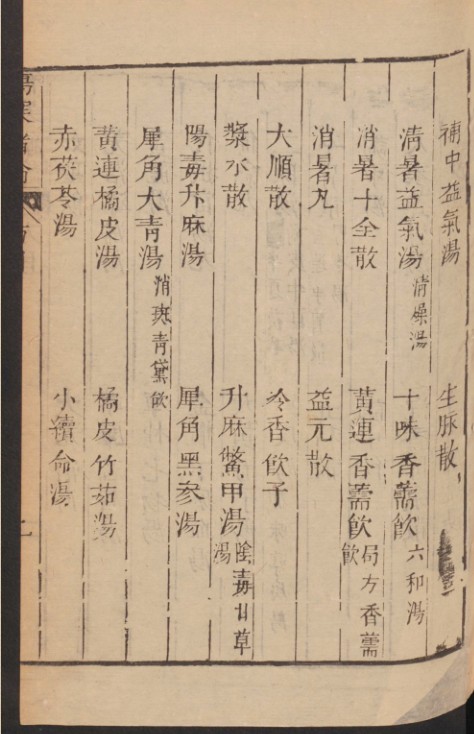 補中益氣湯 生脉散
清暑益氣湯 消燥湯 十味香薷飲 六和湯
消暑十全散 黃連香薷飮 局方香薷飮
消暑丸 益元散
大順散 冷香飮子
漿水散 升麻鱉甲湯 陰毒甘草湯
陽毒升麻湯 犀角黑參湯
犀角大青湯 消斑青黛飮
黃連橘皮湯 橘皮竹茹湯
赤茯苓湯 小續命湯